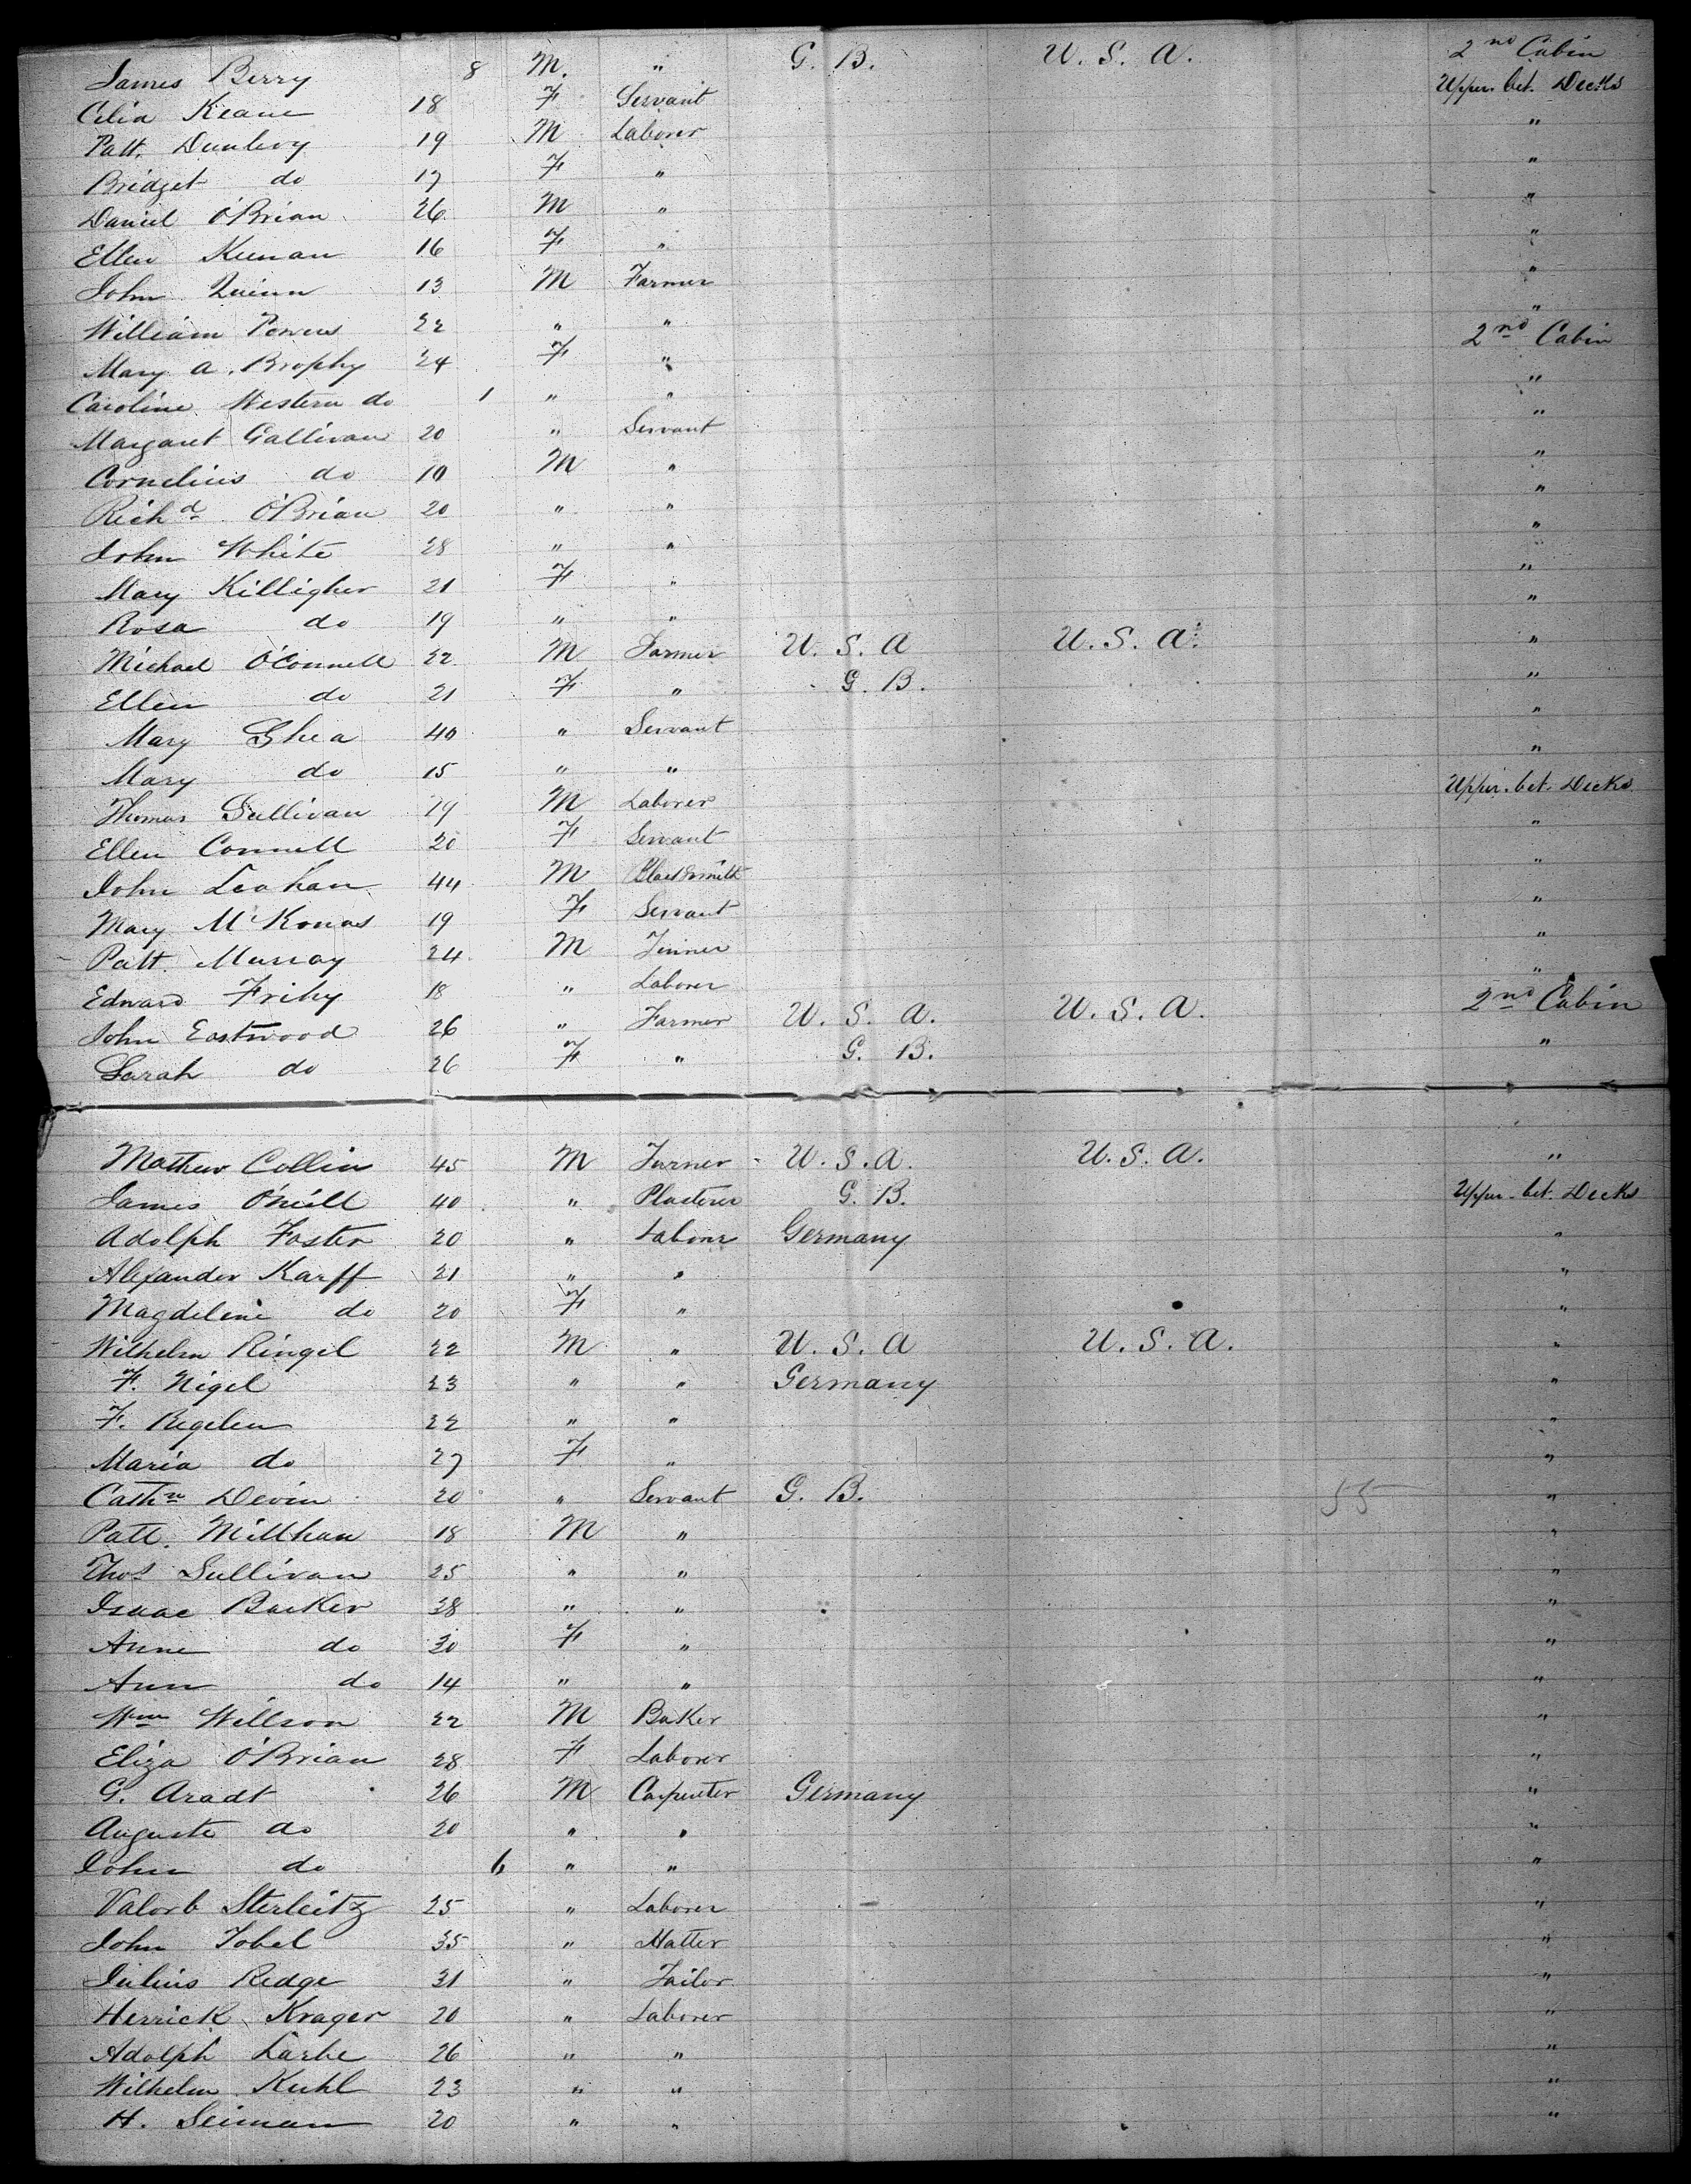 James Berry 8 M. " G. B. U. S. A. 2nd Cabin
Celia Keane 18 F Servant Upper. bet. Decks
Patt. Dunlevy 19 M Laborer "
Bridget do 17 F " "
Daniel O'Brian 26 M " "
Ellen Keenan 16 F " "
John Quinn 13 M Farmer "
William Powers 22 " " "
Mary A. Brophy 24 F " 2nd Cabin
Caroline Western do 1 " " "
Margaret Gallivan 20 " Servant "
Cornelius do 10 M " "
Richd O'Brian 20 " " "
John White 28 " " "
Mary Killigher 21 F " "
Rosa do 19 " " "
Michael O'Connell 22 M Farmer U. S. A U. S. A. "
Ellen do 21 F " G. B. "
Mary Shea 40 " Servant "
Mary do 15 " " "
Thomas Sullivan 19 M Laborer Upper. bet. Decks
Ellen Connell 20 F Servant "
John Leahan 44 M Blacksmith "
Mary McKonas 19 F Servant "
Patt. Murray 24 M Tinner "
Edward Frihy 18 " Laborer "
John Eastwood 26 " Farmer U. S. A. U. S. A. 2nd Cabin
Sarah do 26 F " G. B. "
Mathew Collin 45 M Turner U. S. A. U. S. A. "
James O'neill 40 " Plasterer G. B. Upper. bet. Decks
Adolph Foster 20 " Laborer Germany "
Alexander Karff 21 " " "
Magdeline do 20 F " "
Wilhelm Ringel 22 M " U. S. A U. S. A. "
F. Nigel 23 " " Germany "
F. Regelen 22 " " "
Maria do 27 F " "
Cathn Devin 20 " Servant G. B. 55 "
Patt. Millhan 18 M " "
Thos Sullivan 25 " " "
Isaac Barker 38 " " "
Anne do 30 F " "
Ann do 14 " " "
Wm Willson 22 M Baker "
Eliza O'Brian 28 F Laborer "
G. Aradt 26 M Carpenter Germany "
Auguste do 20 " " "
John do 6 " " "
Valorb Sterleitz 25 " Laborer "
John Tobel 35 " Hatter "
Julius Redge 31 " Tailor "
Herrick Krager 20 " Laborer "
Adolph Larbe 26 " " "
Wilhelm Kuhl 23 " " "
H. Seiman 20 " " "